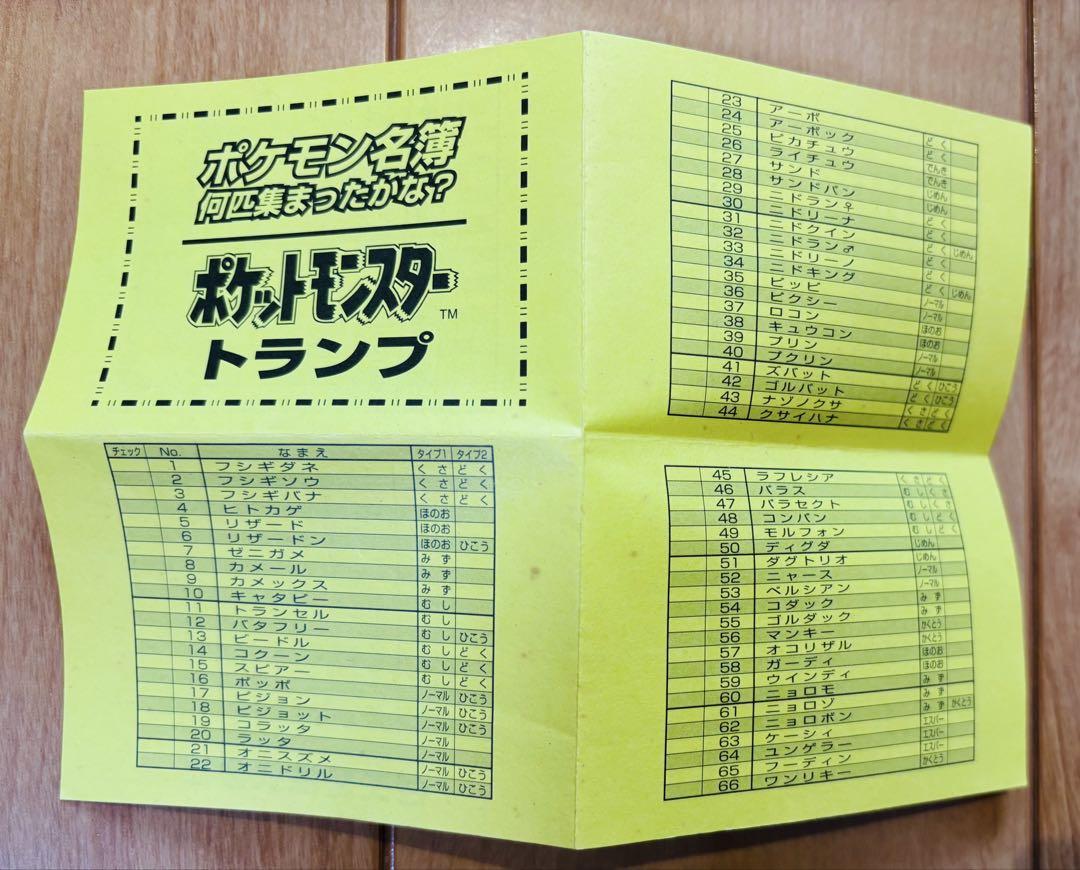 ポケモン名簿
何匹集まったかな?
ポケットモンスター™
トランプ
チェック No. なまえ タイプ1 タイプ2
1 フシギダネ くさ どく
2 フシギソウ くさ どく
3 フシギバナ くさ どく
4 ヒトカゲ ほのお
5 リザード ほのお
6 リザードン ほのお ひこう
7 ゼニガメ みず
8 カメール みず
9 カメックス みず
10 キャタピー むし
11 トランセル むし
12 バタフリー むし ひこう
13 ビードル むし どく
14 コクーン むし どく
15 スピアー むし どく
16 ポッポ ノーマル ひこう
17 ピジョン ノーマル ひこう
18 ピジョット ノーマル ひこう
19 コラッタ ノーマル
20 ラッタ ノーマル
21 オニスズメ ノーマル ひこう
22 オニドリル ノーマル ひこう
23 アーボ どく
24 アーボック どく
25 ピカチュウ でんき
26 ライチュウ でんき
27 サンド じめん
28 サンドパン じめん
29 ニドラン♀ どく
30 ニドリーナ どく
31 ニドクイン どく じめん
32 ニドラン♂ どく
33 ニドリーノ どく
34 ニドキング どく じめん
35 ピッピ ノーマル
36 ピクシー ノーマル
37 ロコン ほのお
38 キュウコン ほのお
39 プリン ノーマル
40 プクリン ノーマル
41 ズバット どく ひこう
42 ゴルバット どく ひこう
43 ナゾノクサ くさ どく
44 クサイハナ くさ どく
45 ラフレシア くさ どく
46 パラス むし くさ
47 パラセクト むし くさ
48 コンパン むし どく
49 モルフォン むし どく
50 ディグダ じめん
51 ダグトリオ じめん
52 ニャース ノーマル
53 ペルシアン ノーマル
54 コダック みず
55 ゴルダック みず
56 マンキー かくとう
57 オコリザル かくとう
58 ガーディ ほのお
59 ウインディ ほのお
60 ニョロモ みず
61 ニョロゾ みず
62 ニョロボン みず かくとう
63 ケーシィ エスパー
64 ユンゲラー エスパー
65 フーディン エスパー
66 ワンリキー かくとう